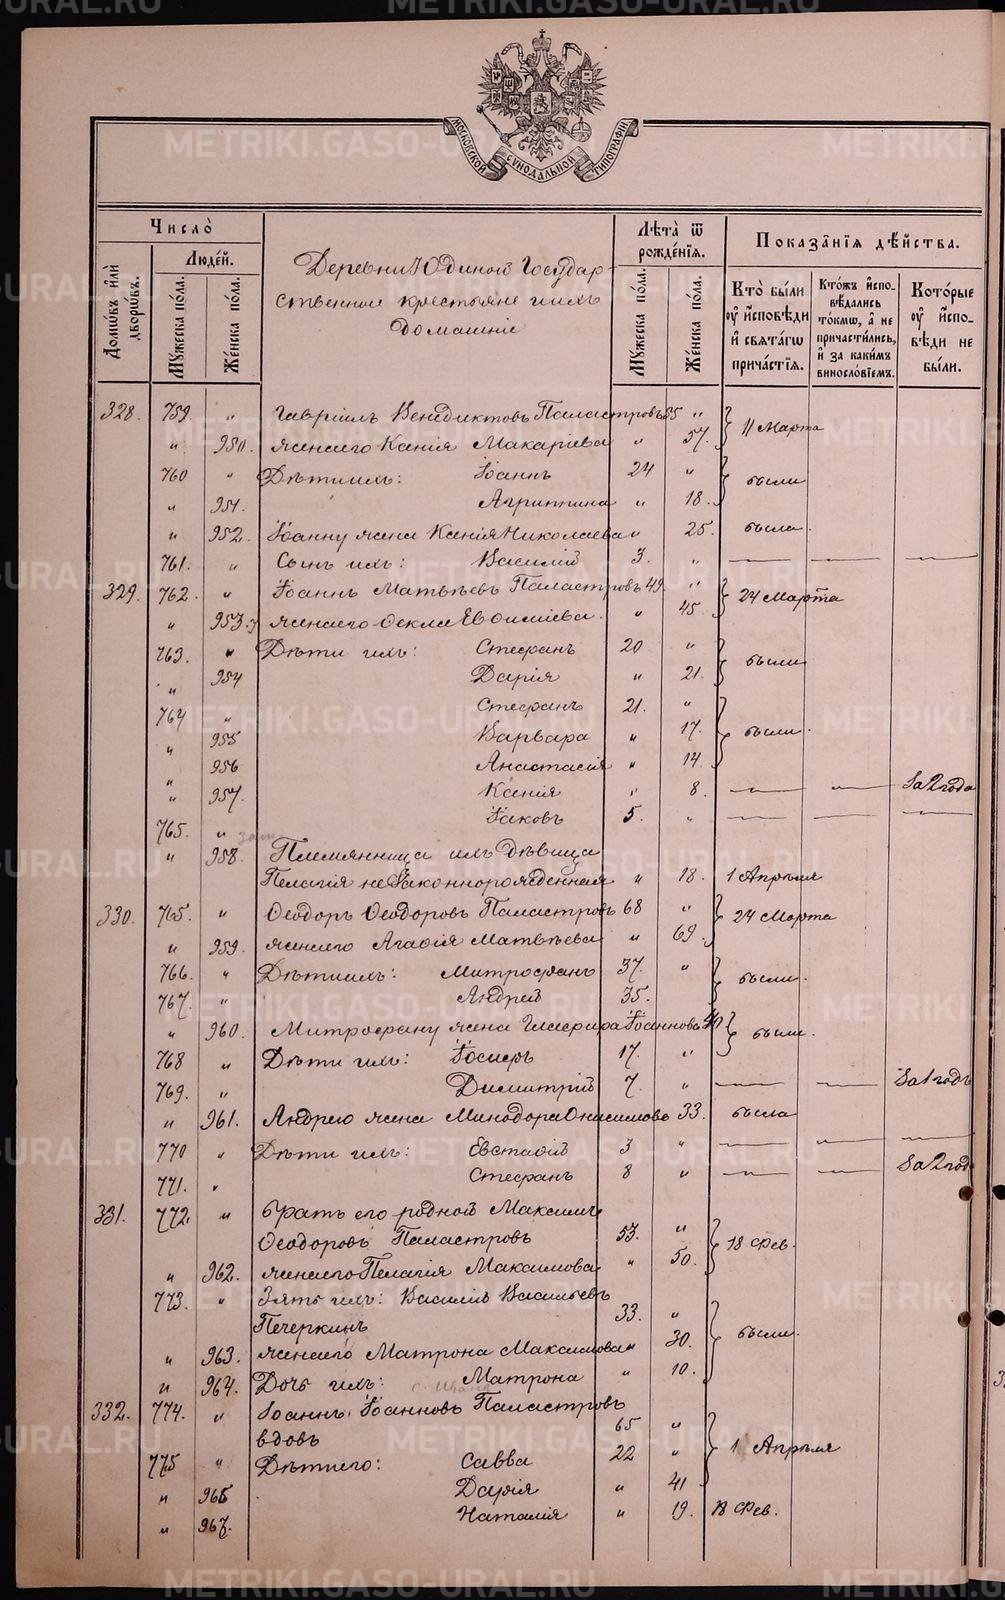 МОСКОВСКОЙ СѴНОДАЛЬНОЙ ТИПОГРАФІИ
Число̀
Домѡ́въ и҆лѝ дворѡ́въ.
Люде́й.
Мꙋ́жеска по́ла.
Же́нска по́ла.
Деревни Юдиной Государ-
ственные крестьяне и ихъ
домашніе
Лѣ́та ѿ рожде́нїѧ.
Мꙋ́жеска по́ла.
Же́нска по́ла.
Показа̑нїѧ дѣ́йства.
Кто̀ бы́ли оу҆ и҆сповѣ́ди и҆ свѧта́гѡ прича́стїѧ.
Кто́жъ и҆спо-вѣ́дались то́кмѡ, а҆ не причасти́лись, и҆ за каки́мъ винослові́емъ.
Кото́рые оу҆ и҆спо-вѣ́ди не бы́ли.
328. 759. " Гавріилъ Венедиктовъ Паластровъ 55 " 11 Марта
" 950. жена его Ксенія Макаріева " 57.
760 " Дѣти ихъ: Іоаннъ 24 " были
" 951. Агриппина " 18.
" 952. Іоанну жена Ксенія Николаева " 25. была
761. " Сынъ ихъ: Василій 3. "
329. 762. " Іоаннъ Матвѣевъ Паластровъ 49. " 24 Марта
" 953. жена его Ѳекла Евѳиміева. " 45.
763. " Дѣти ихъ: Стефанъ 20 " были
" 954 Дарія " 21.
764 " Стефанъ 21. " были
" 955 Варвара " 17.
" 956 Анастасія " 14.
" 957. Ксенія " 8. За 2 года
765. " Іаковъ 5. "
" 958. Племянница ихъ дѣвица
Пелагія незаконнорожденная " 18. 1 Апрѣля
330. 765. " Ѳеодоръ Ѳеодоровъ Паластровъ 68 " 24 Марта
" 959. жена его Агаѳія Матвѣева " 69.
766. " Дѣти ихъ: Митрофанъ 37. " были
767. " Андрей 35.
" 960. Митрофану жена Гликерія Іоаннова 40 были
768 " Дѣти ихъ: Іосифъ 17. "
769. " Димитрій 7. " За 1 годъ
" 961. Андрею жена Минодора Онисимова 33. была
770 " Дѣти ихъ: Евстафій 3 "
771. " Стефанъ 8 " За 2 год
331. 772. " братъ его родной Максимъ
Ѳеодоровъ Паластровъ 53. " 18 Фев.
" 962. жена его Пелагія Максимова " 50.
773. " Зять ихъ: Василій Васильевъ
Печеркинъ 33. " были
" 963. жена его Матрона Максимова " 30.
" 964. Дочь ихъ: Матрона " 10.
332. 774. " Іоаннъ Іоанновъ Паластровъ
вдовъ 65 " 1 Апрѣля
775 " Дѣти его: Савва 22 "
" 965 Дарія " 41
" 967. Наталія " 19. 18 Фев.
METRIKI.GASO-URAL.RU